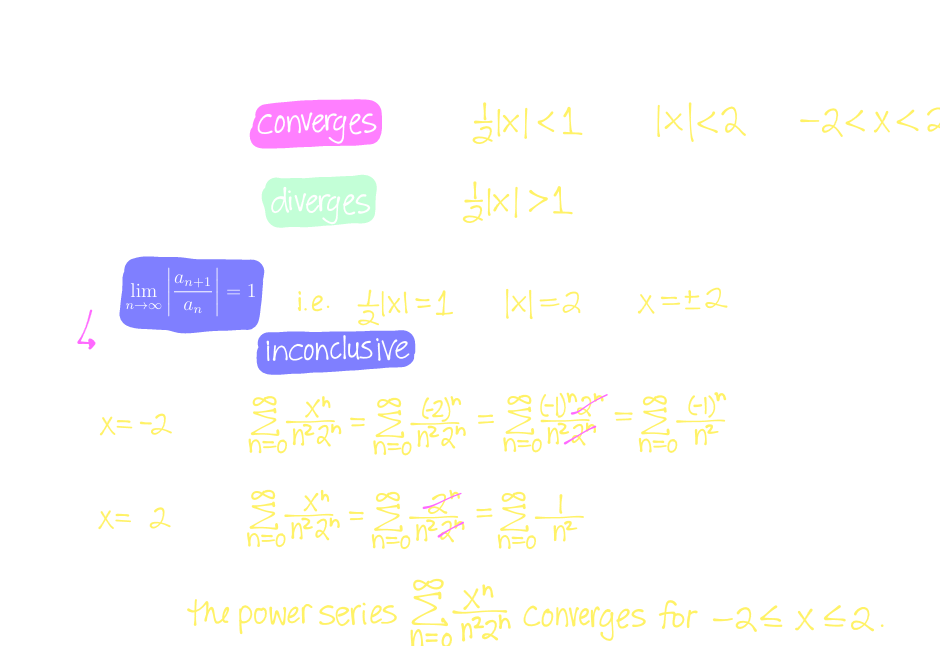 converges ½|x| < 1 |x| < 2 -2 < x < 2
diverges ½|x| > 1
lim_{n→∞} |a_{n+1}/a_n| = 1 i.e. ½|x| = 1 |x| = 2 x = ±2
inconclusive
x = -2 ∑_{n=0}^{∞} x^n/(n^2 2^n) = ∑_{n=0}^{∞} (-2)^n/(n^2 2^n) = ∑_{n=0}^{∞} (-1)^n 2^n/(n^2 2^n) = ∑_{n=0}^{∞} (-1)^n/n^2
x = 2 ∑_{n=0}^{∞} x^n/(n^2 2^n) = ∑_{n=0}^{∞} 2^n/(n^2 2^n) = ∑_{n=0}^{∞} 1/n^2
the power series ∑_{n=0}^{∞} x^n/(n^2 2^n) converges for -2 ≤ x ≤ 2.